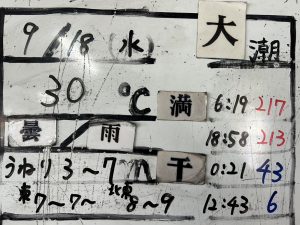 9/18（水） 大潮
30℃ 満 6:19 217
曇/雨 18:58 213
うねり3〜7m 干 0:21 43
東7〜7〜北東8〜9 12:43 6